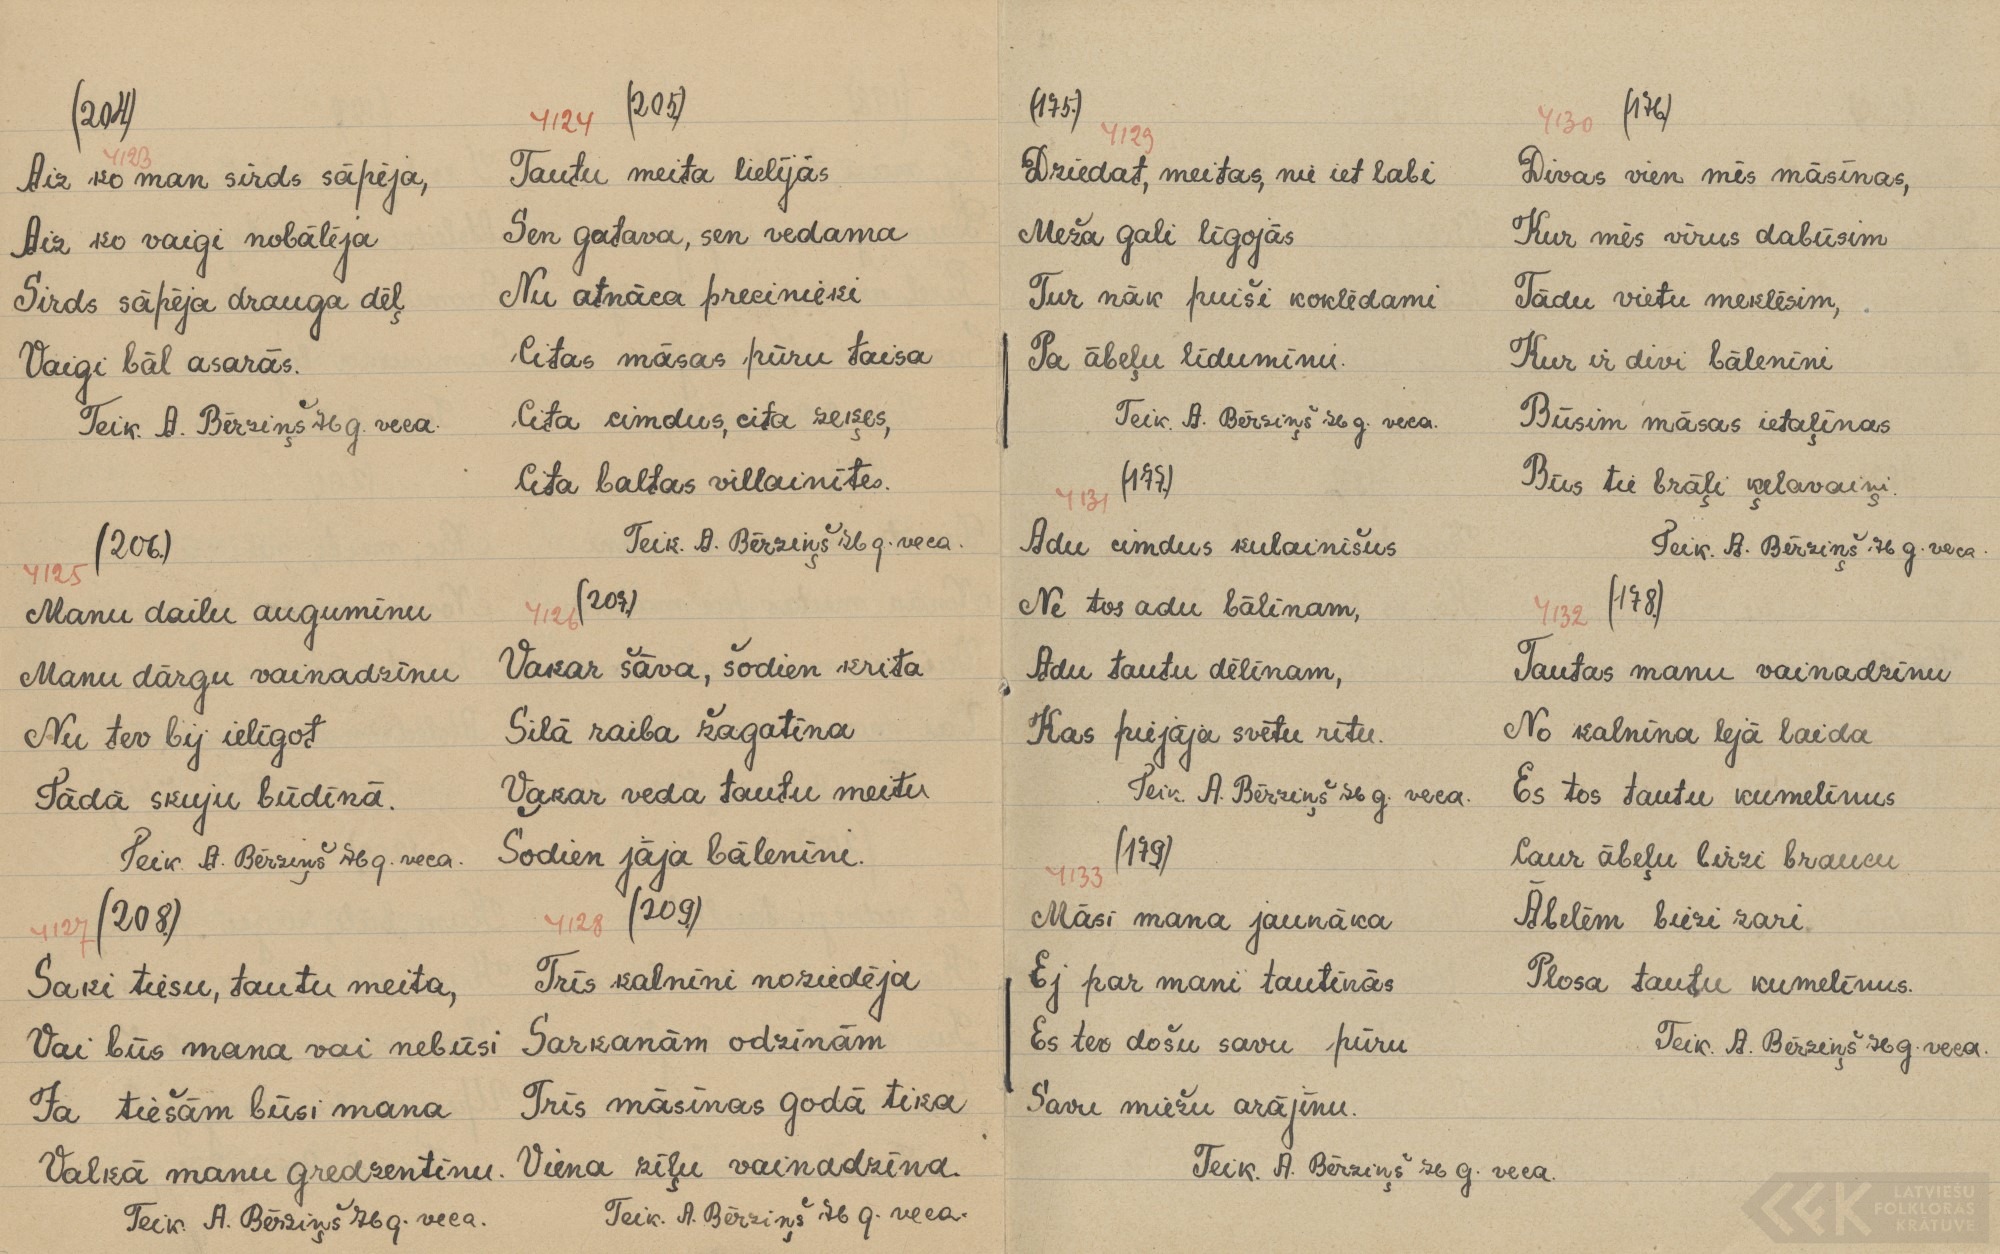 (204)
4123
Aiz ko man sirds sāpēja,
Aiz ko vaigi nobālēja
Sirds sāpēja drauga dēļ
Vaigi bāl asarās.
Teik. A. Bērziņš 76 g. veca.
4124 (205)
Tautu meita lielījās
Sen gatava, sen vedama
Nu atnāca precinieki
Citas māsas pūru taisa
Cita cimdus, cita zeķes,
Cita baltas villainītes.
Teik. A. Bērziņš 76 g. veca.
(206.)
4125
Manu dailu augumīnu
Manu dārgu vainadzīnu
Nu tev bij ielīgot
Tādā skuju būdīnā.
Teik. A. Bērziņš 76 g. veca.
4126 (207.)
Vakar šāva, šodien krita
Silā raiba žagatīna
Vakar veda tautu meitu
Sodien jāja bālenīni.
4127 (208.)
Saki tiesu, tautu meita,
Vai būs mana vai nebūsi
Ja tiešām būsi mana
Valkā manu gredzentīnu.
Teik. A. Bērziņš 76 g. veca.
4128 (209.)
Trīs kalnīni noziedēja
Sarkanām odzīnām
Trīs māsīnas godā tika
Viena zīļu vainadzīna.
Teik. A. Bērziņš 76 g. veca.
(175.)
4129
Dziedat, meitas, nu iet labi
Meža gali līgojās
Tur nāk puiši koklēdami
Pa ābeļu līdumīnu.
Teik. A. Bērziņš 76 g. veca.
4130 (176.)
Divas vien mēs māsīnas,
Kur mēs vīrus dabūsim
Tādu vietu meklēsim,
Kur ir divi bālenīni
Būsim māsas ietaļīnas
Būs tie brāļi ķelavaiņi.
Teik. A. Bērziņš 76 g. veca.
4131 (177.)
Adu cimdus kulainišus
Ne tos adu bālīnam,
Adu tautu dēlīnam,
Kas piejāja svētu rītu.
Teik. A. Bērziņš 76 g. veca.
4132 (178.)
Tautas manu vainadzīnu
No kalnīna lejā laida
Es tos tautu kumelīnus
Caur ābeļu birzi braucu
Ābelēm biezi zari
Plosa tautu kumelīnus.
Teik. A. Bērziņš 76 g. veca.
4133 (179)
Māsi mana jaunāka
Ej par mani tautīnās
Es tev došu savu pūru
Savu miežu arājīnu.
Teik. A. Bērziņš 76 g. veca.
LATVIEŠU
FOLKLORAS
KRĀTUVE